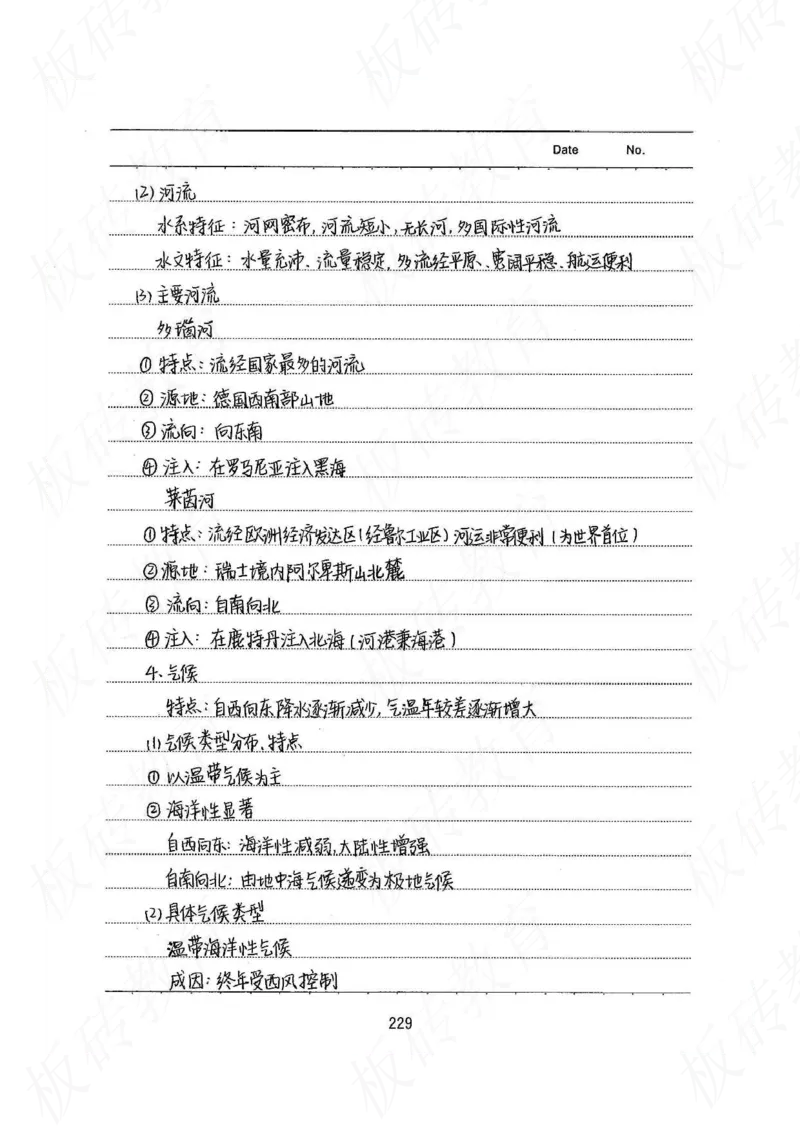 Date No.
(2) 河流
水系特征：河网密布，河流短小，无长河，多国际性河流
水文特征：水量充沛、流量稳定，多流经平原、宽阔平稳、航运便利
(3) 主要河流
多瑙河
① 特点：流经国家最多的河流
② 源地：德国西南部山地
③ 流向：向东南
④ 注入：在罗马尼亚注入黑海
莱茵河
① 特点：流经欧洲经济发达区（经鲁尔工业区）河运非常便利（为世界首位）
② 源地：瑞士境内阿尔卑斯山北麓
③ 流向：自南向北
④ 注入：在鹿特丹注入北海（河港兼海港）
4、气候
特点：自西向东降水逐渐减少，气温年较差逐渐增大
(1) 气候类型分布、特点
① 以温带气候为主
② 海洋性显著
自西向东：海洋性减弱，大陆性增强
自南向北：由地中海气候递变为极地气候
(2) 具体气候类型
温带海洋性气候
成因：终年受西风控制
229
板砖教育